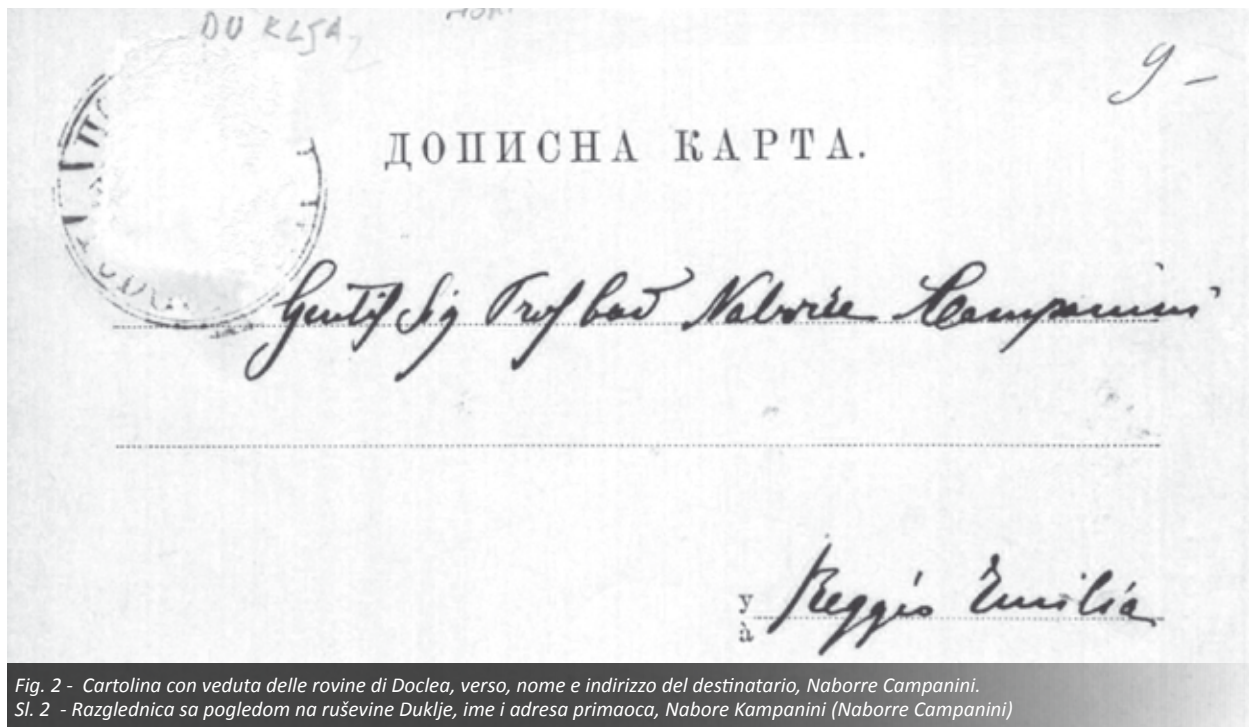 DUKLJA
9 -
ДОПИСНА КАРТА.
Gentil Sig Prof Cav Naborre Campanini
у Reggio Emilia
à
Fig. 2 - Cartolina con veduta delle rovine di Doclea, verso, nome e indirizzo del destinatario, Naborre Campanini.
Sl. 2 - Razglednica sa pogledom na ruševine Duklje, ime i adresa primaoca, Nabore Kampanini (Naborre Campanini)